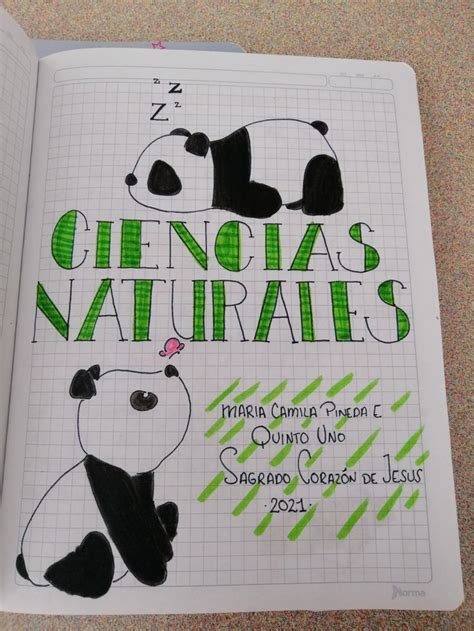 z z
Z z
CIENCIAS
NATURALES
MARIA CAMILA PINEDA E
QUINTO UNO
SAGRADO CORAZÓN DE JESUS
·2021·
Norma